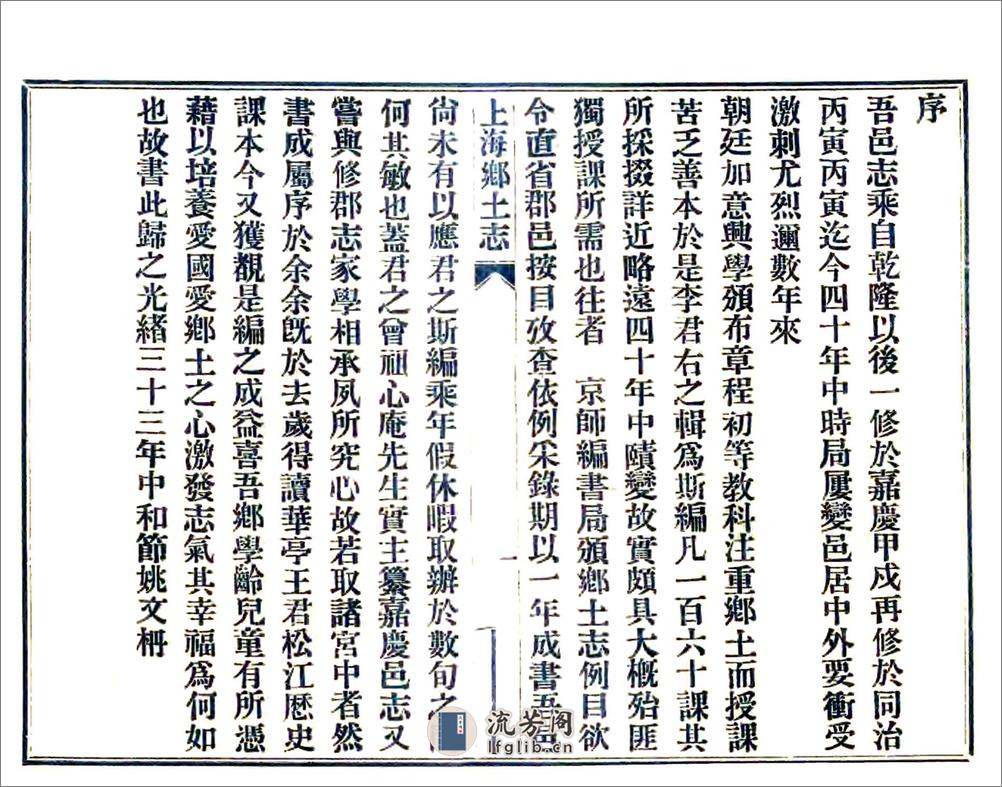 序
吾邑志乘自乾隆以後一修於嘉慶甲戍再修於同治
丙寅丙寅迄今四十年中時局屢變邑居中外要衝受
激刺尤烈邇數年來
朝廷加意興學頒布章程初等教科注重鄉土而授課
苦乏善本於是李君右之輯爲斯編凡一百六十課其
所採掇詳近略遠四十年中賾變故實頗具大槪殆匪
獨授課所需也往者　京師編書局頒鄉土志例目欲
令直省郡邑按目攷查依例采錄期以一年成書吾邑
上海鄉土志
尙未有以應君之斯編乘年假休暇取辦於數旬之
何其敏也蓋君之曾祖心庵先生實主纂嘉慶邑志又
嘗與修郡志家學相承夙所究心故若取諸宮中者然
書成屬序於余余旣於去歲得讀華亭王君松江歷史
課本今又獲覩是編之成益喜吾鄉學齡兒童有所憑
藉以培養愛國愛鄉土之心激發志氣其幸福爲何如
也故書此歸之光緖三十三年中和節姚文枬
流芳阁
lfglib.cn